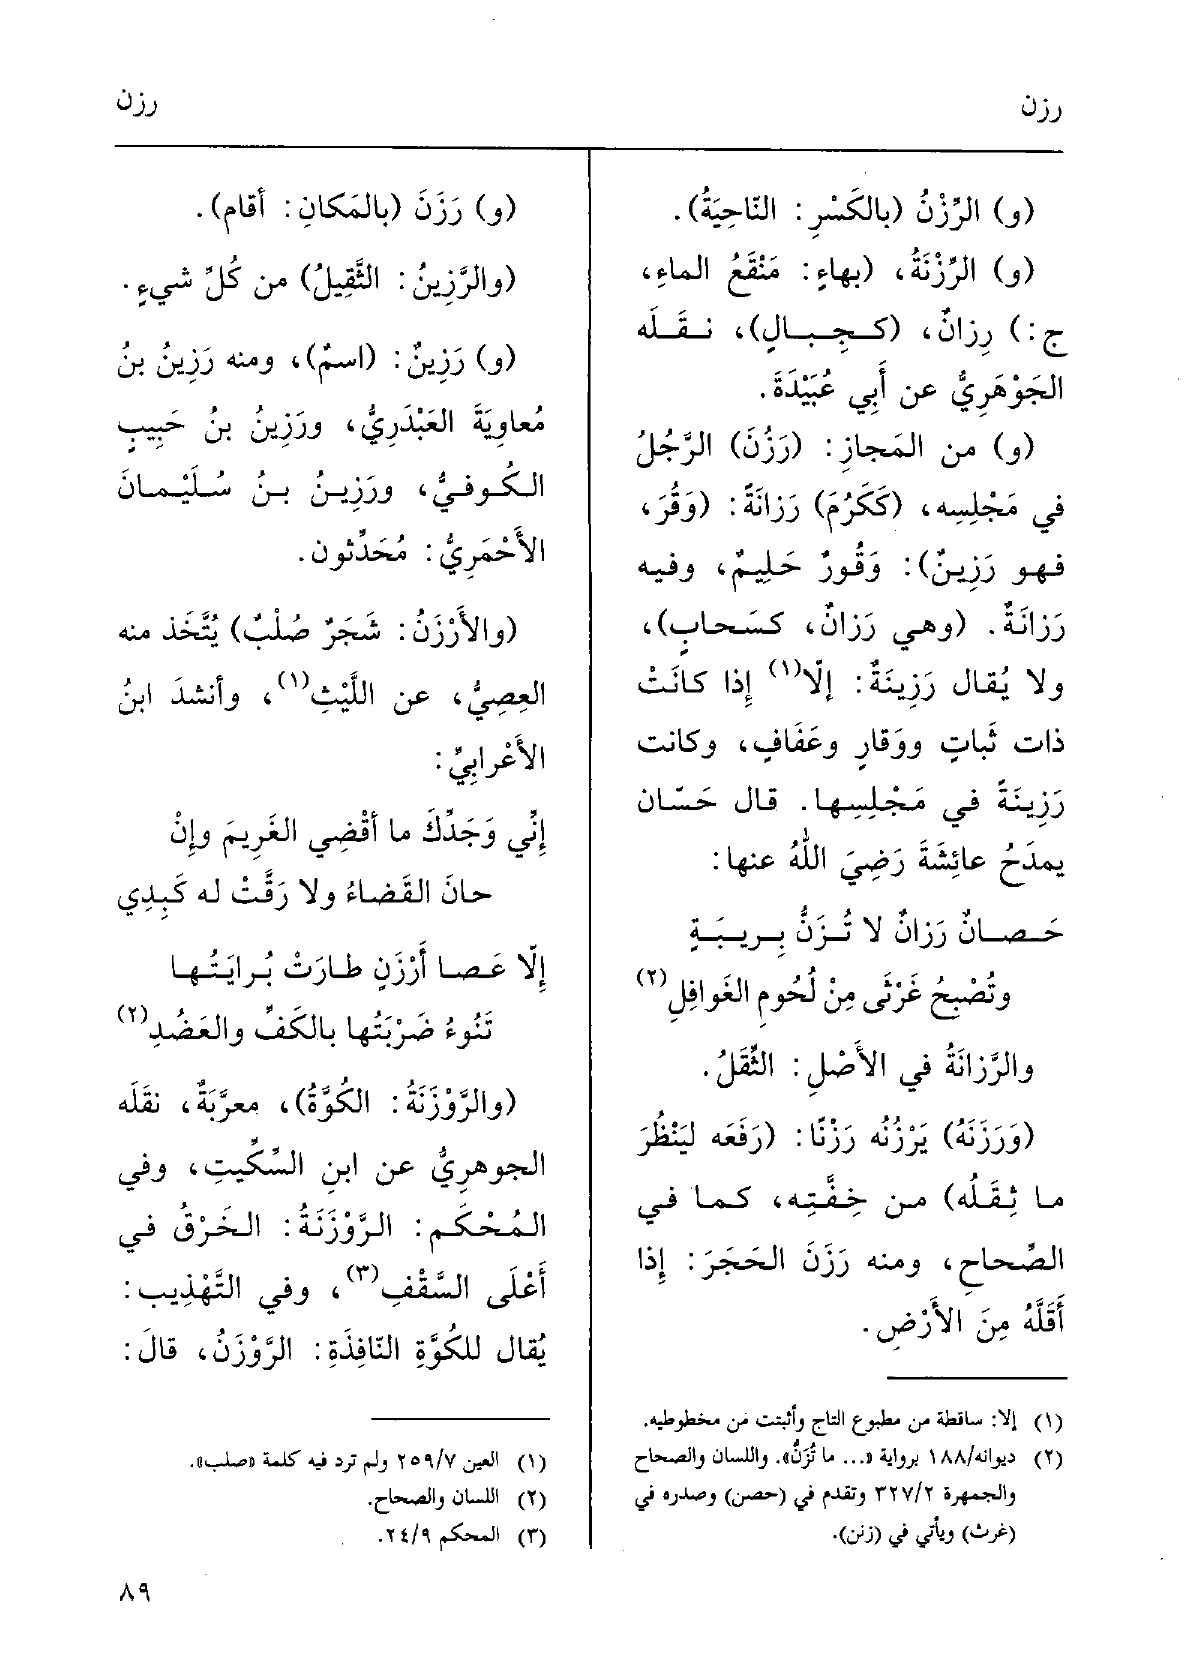 رزن
رزن
(و) الرِّزْنُ (بالكَسْرِ: النّاحِيَةُ).
(و) الرِّزْنَةُ، (بهاءٍ: مَنْقَعُ الماءِ،
ج:) رِزانٌ، (كـجِـبـالٍ)، نـقَـلَه
الجَوْهَرِيُّ عن أَبِي عُبَيْدَةَ.
(و) من المَجازِ: (رَزُنَ) الرَّجُلُ
في مَجْلِسِه، (كَكَرُمَ) رَزانَةً: (وَقُرَ،
فهو رَزِينٌ): وَقُورٌ حَلِيمٌ، وفيه
رَزانَةٌ. (وهي رَزانٌ، كسَحابٍ)،
ولا يُقال رَزِينَةٌ: إلّا(١) إذا كانَتْ
ذات ثَباتٍ ووَقارٍ وعَفَافٍ، وكانت
رَزِينَةً في مَجْلِسِها. قال حَسّان
يمدَحُ عائِشَةَ رَضِيَ اللهُ عنها:
حَـصـانٌ رَزانٌ لا تُـزَنُّ بِـرِيـبَـةٍ
وتُصْبِحُ غَرْثَى مِنْ لُحُومِ الغَوافِلِ(٢)
والرَّزانَةُ في الأَصْلِ: الثِّقَلُ.
(وَرَزَنَهُ) يَرْزُنُه رَزْنًا: (رَفَعَه لِيَنْظُرَ
ما ثِقَلُه) من خِفَّتِه، كما في
الصِّحاحِ، ومنه رَزَنَ الحَجَرَ: إذا
أَقَلَّهُ مِنَ الأَرْضِ.
(١) إلا: ساقطة من مطبوع التاج وأثبتت من مخطوطيه.
(٢) ديوانه/١٨٨ برواية «... ما تُزَنُّ». واللسان والصحاح
والجمهرة ٣٢٧/٢ وتقدم في (حصن) وصدره في
(غرث) ويأتي في (زنن).
(و) رَزَنَ (بالمَكانِ: أَقام).
(والرَّزِينُ: الثَّقِيلُ) من كُلِّ شيءٍ.
(و) رَزِينٌ: (اسمٌ)، ومنه رَزِينُ بنُ
مُعاوِيَةَ العَبْدَرِيُّ، ورَزِينُ بنُ حَبِيبٍ
الكُوفيُّ، ورَزِينُ بنُ سُلَيْمانَ
الأَحْمَرِيُّ: مُحَدِّثون.
(والأَرْزَنُ: شَجَرٌ صُلْبٌ) يُتَّخَذ منه
العِصِيُّ، عن اللَّيْثِ(١)، وأَنشدَ ابنُ
الأَعْرابِيِّ:
إنِّي وَجَدِّكَ ما أَقْضِي الغَرِيمَ وإنْ
حانَ القَضاءُ ولا رَقَّتْ له كَبِدِي
إلّا عَصا أَرْزَنٍ طارَتْ بُرايَتُها
تَنُوءُ ضَرْبَتُها بالكَفِّ والعَضُدِ(٢)
(والرَّوْزَنَةُ: الكُوَّةُ)، معرَّبَةٌ، نقَلَه
الجوهرِيُّ عن ابنِ السِّكِّيتِ، وفي
المُحْكَمِ: الرَّوْزَنَةُ: الخَرْقُ في
أَعْلَى السَّقْفِ(٣)، وفي التَّهْذِيبِ:
يُقال للكُوَّةِ النّافِذَةِ: الرَّوْزَنُ، قالَ:
(١) العين ٢٥٩/٧ ولم ترد فيه كلمة «صلب».
(٢) اللسان والصحاح.
(٣) المحكم ٢٤/٩.
٨٩